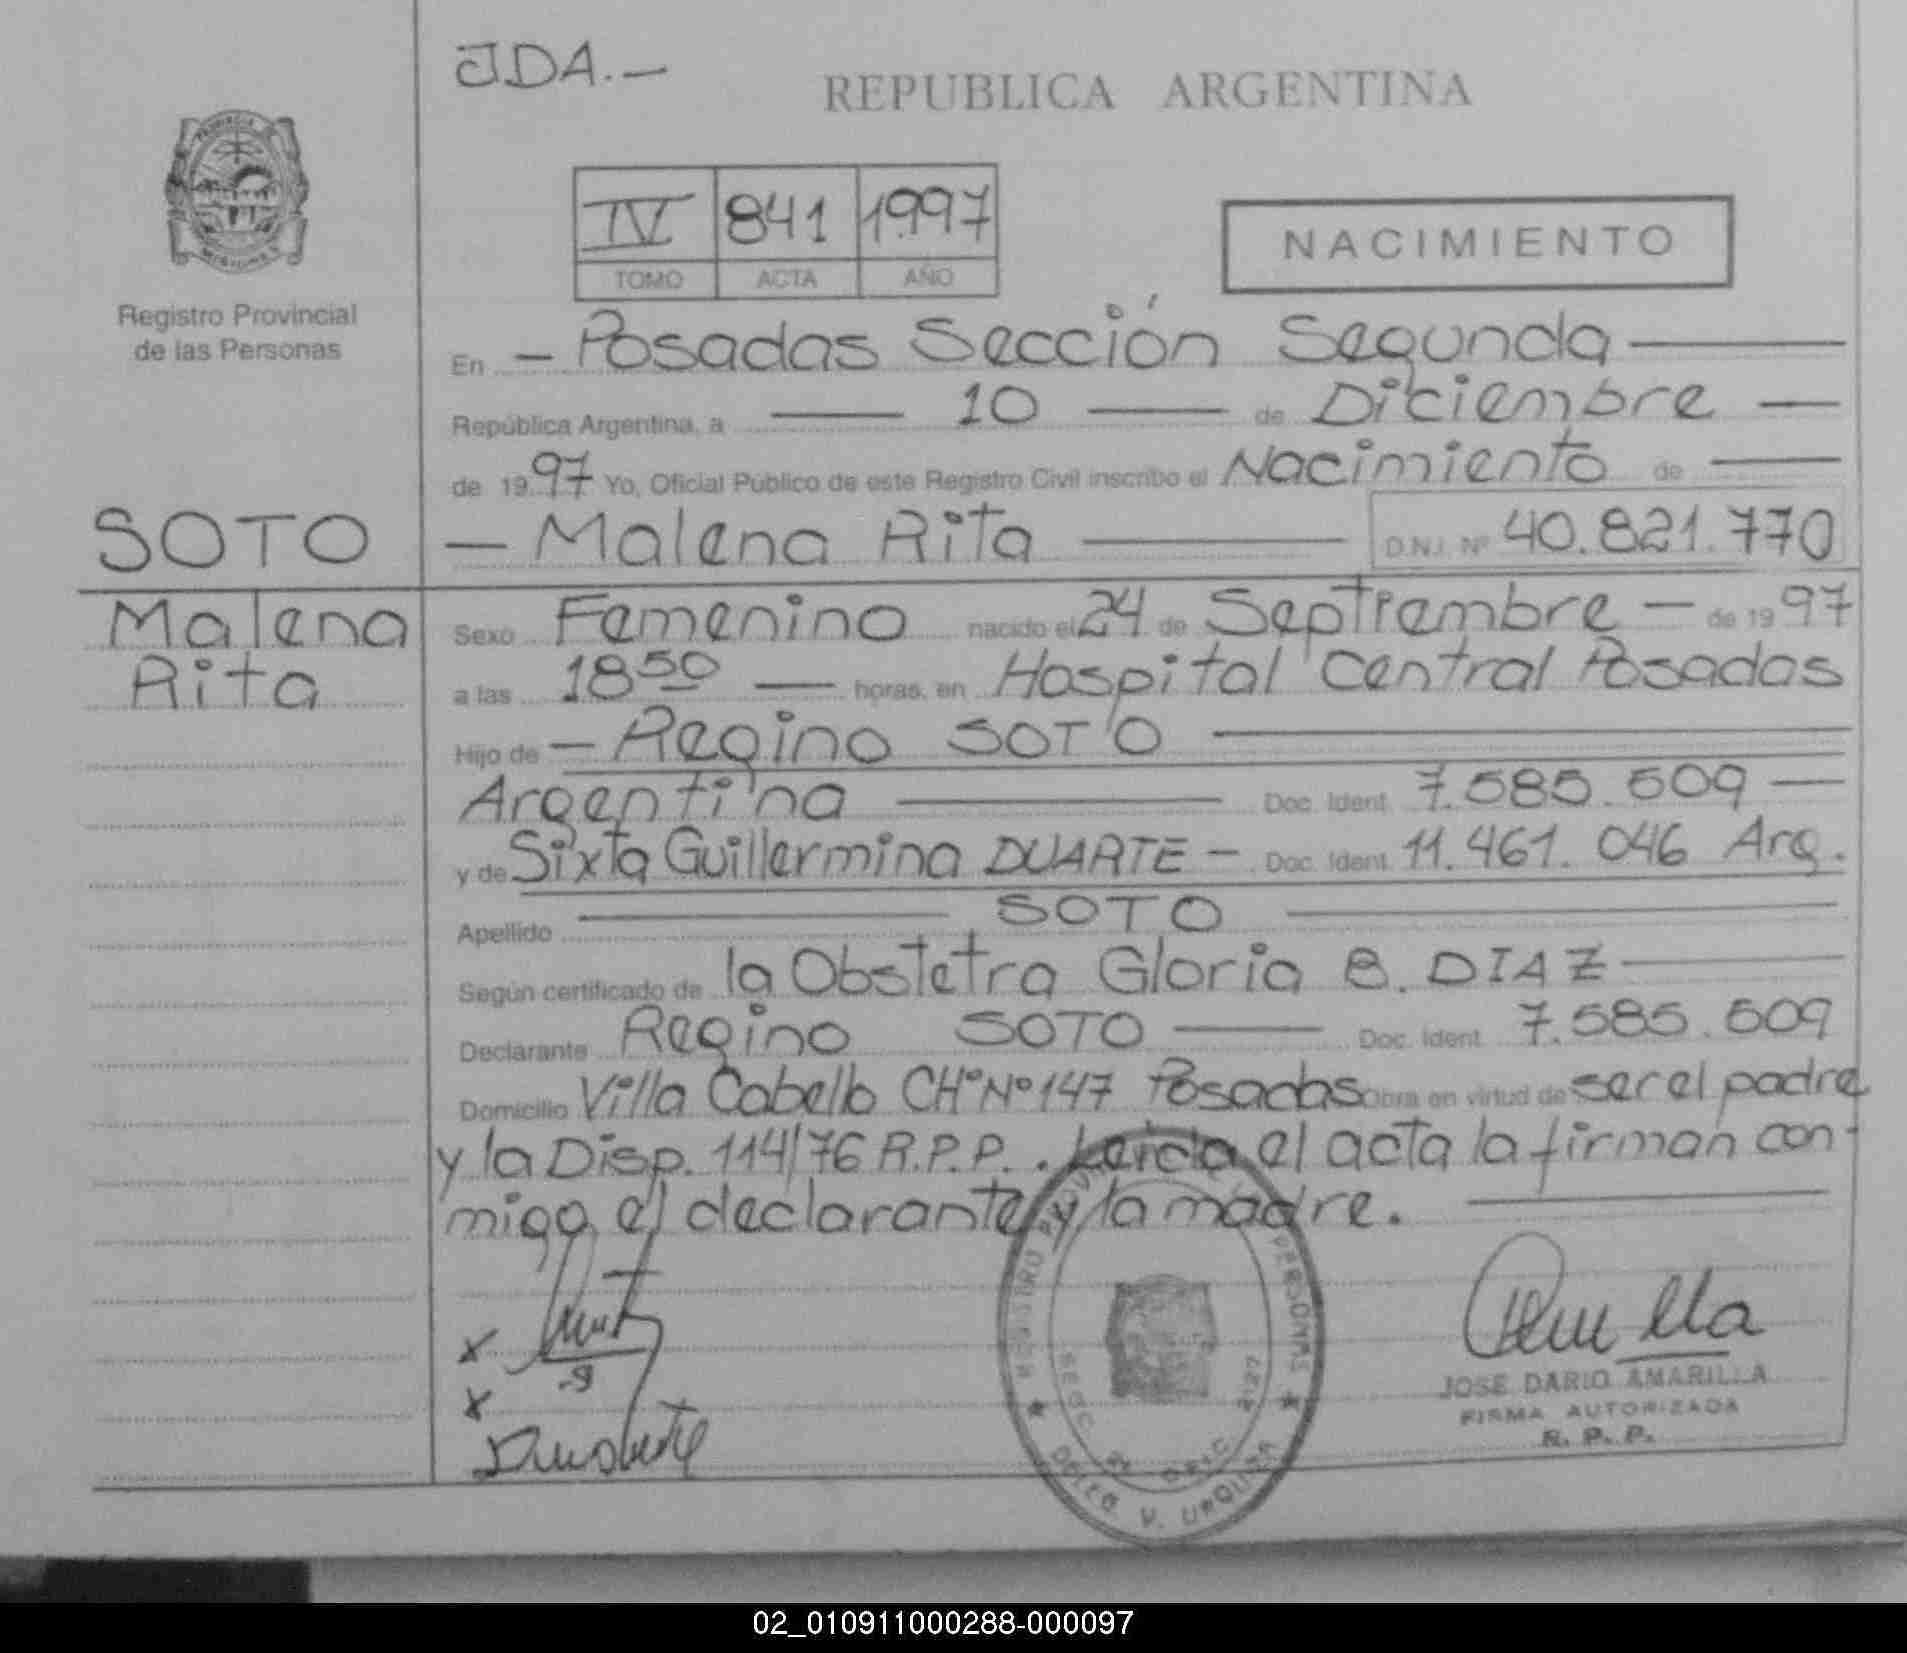 JDA.—
REPUBLICA ARGENTINA
IV 841 1997
TOMO ACTA AÑO
NACIMIENTO
Registro Provincial
de las Personas
En — Posadas Sección Segunda —
República Argentina, a — 10 — de Diciembre —
de 1997 Yo, Oficial Público de este Registro Civil inscribo el Nacimiento de —
SOTO
— Malena Rita — D.N.I. Nº 40.821.770
Malena
Rita
Sexo Femenino nacido el 24 de Septiembre — de 1997
a las 18⁵⁰ — horas, en Hospital Central Posadas
Hijo de — Regino SOTO —
Argentina — Doc. Ident. 7.585.509 —
y de Sixta Guillermina DUARTE — Doc. Ident. 11.461.046 Arg.
Apellido — SOTO —
Según certificado de la Obstetra Gloria B. DIAZ —
Declarante Regino SOTO — Doc. Ident. 7.585.509
Domicilio Villa Cabello CHº Nº 147 Posadas Obra en virtud de ser el padre
y la Disp. 114/76 R.P.P.. Leida el acta la firman con-
migo el declarante y la madre. —
x
x
Duarte
JOSE DARIO AMARILLA
FIRMA AUTORIZADA
R. P. P.
02_010911000288-000097